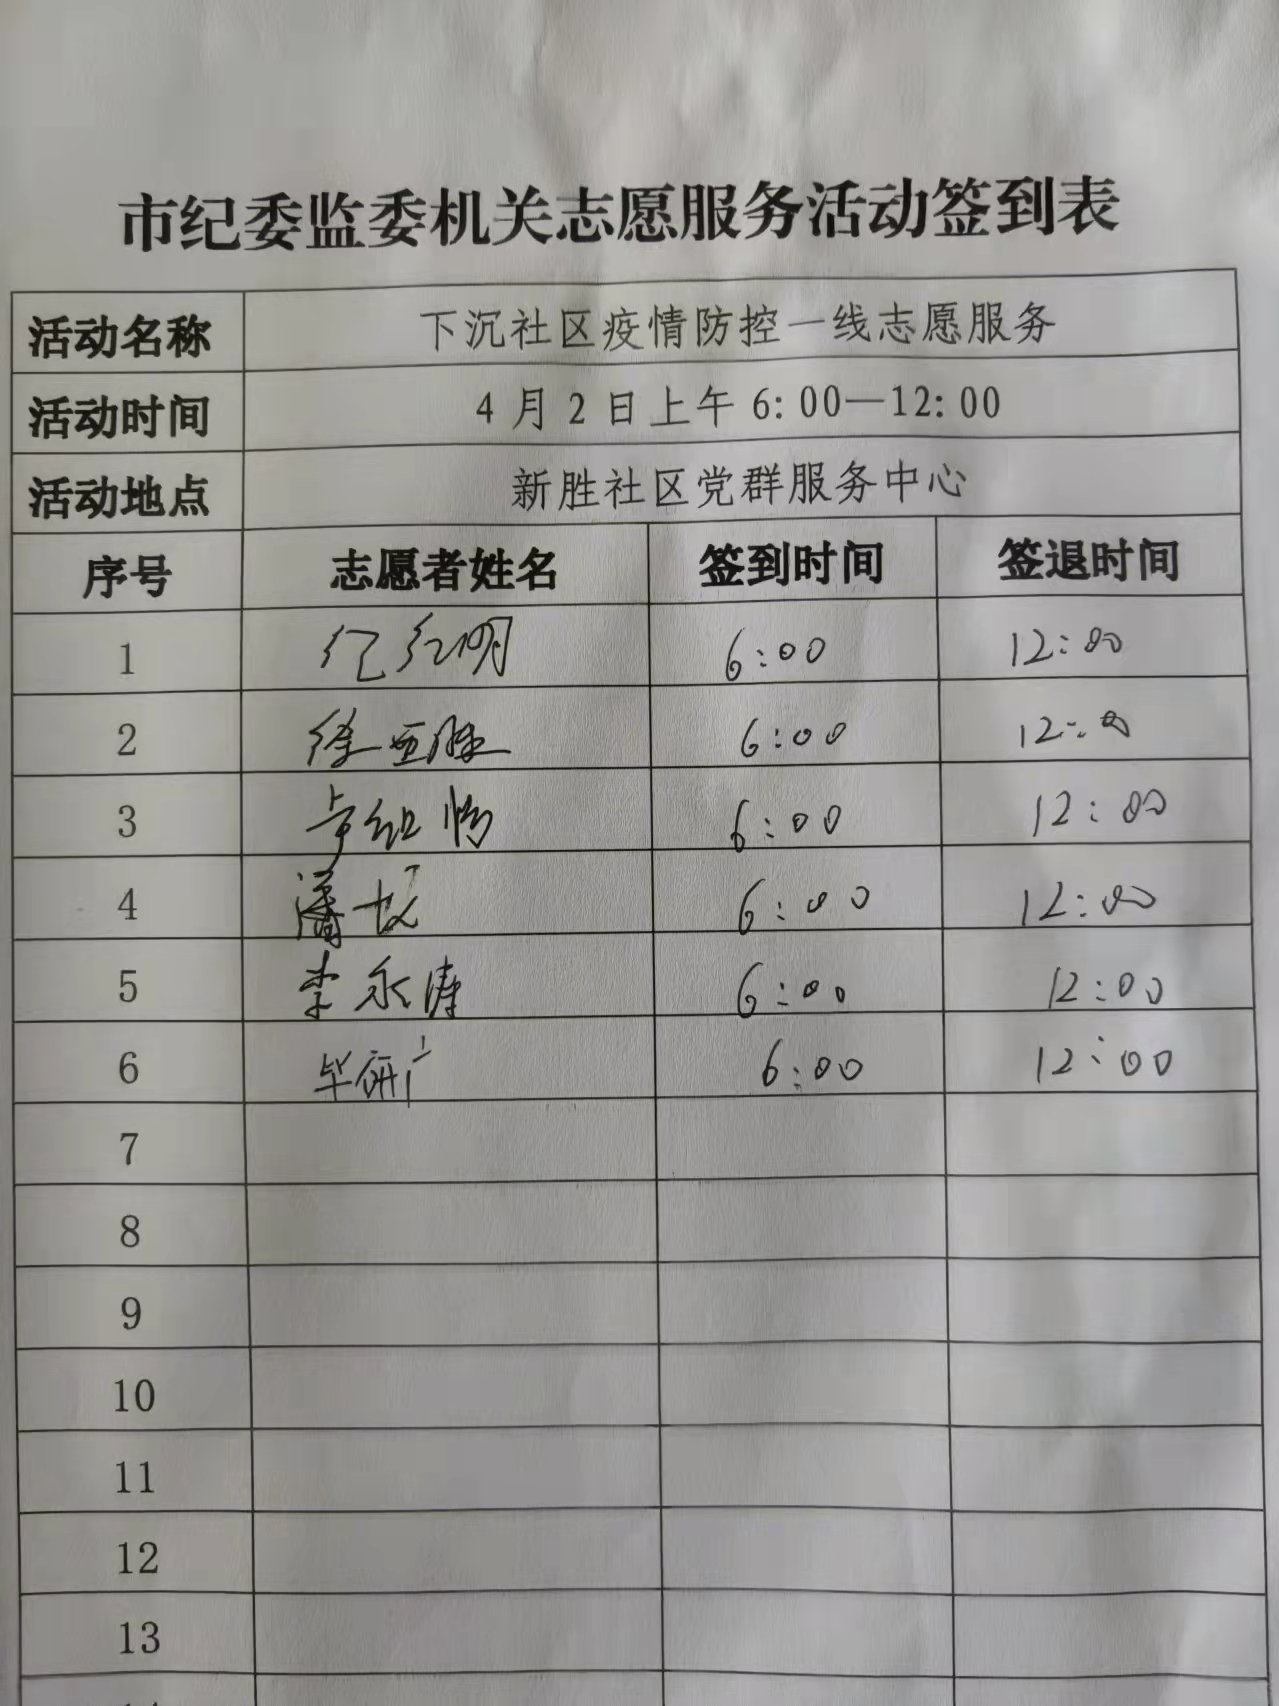 市纪委监委机关志愿服务活动签到表
活动名称 下沉社区疫情防控一线志愿服务
活动时间 4月2日上午6:00—12:00
活动地点 新胜社区党群服务中心
序号 志愿者姓名 签到时间 签退时间
1 纪红明 6:00 12:00
2 徐亚胜 6:00 12:00
3 6:00 12:00
4 潘 6:00 12:00
5 李永涛 6:00 12:00
6 毕研 6:00 12:00
7
8
9
10
11
12
13